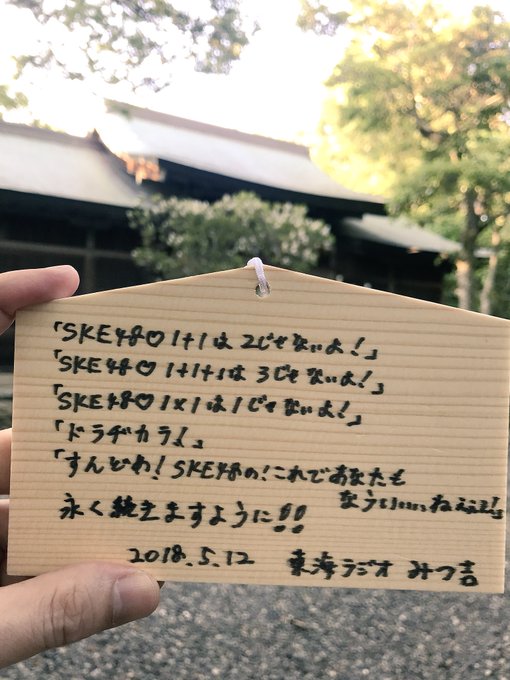 「SKE48♡1+1は2じゃないよ!」
「SKE48♡1+1+1は3じゃないよ!」
「SKE48♡1×1は1じゃないよ!」
「ドラヂカラ!」
「すんどめ!SKE48の!これであなたも
なういぃぃぃねぇぇぇ!」
永く続きますように!!
2018.5.12 東海ラジオ みつ吉